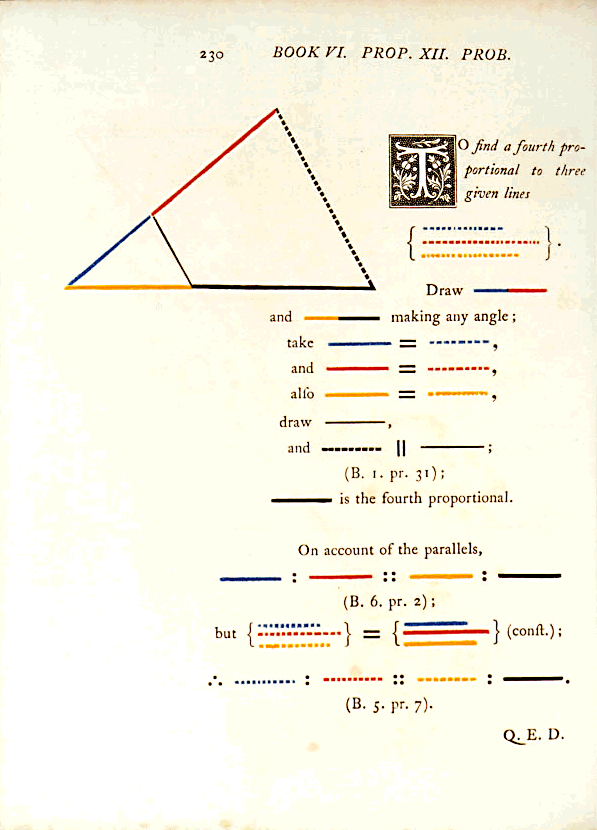 230 BOOK VI. PROP. XII. PROB.
TO find a fourth pro-
portional to three
given lines
{ } .
Draw
and making any angle ;
take = ,
and = ,
alſo = ,
draw ,
and || ;
(B. 1. pr. 31) ;
is the fourth proportional.
On account of the parallels,
: :: :
(B. 6. pr. 2) ;
but { } = { } (conſt.) ;
∴ : :: : .
(B. 5. pr. 7).
Q. E. D.